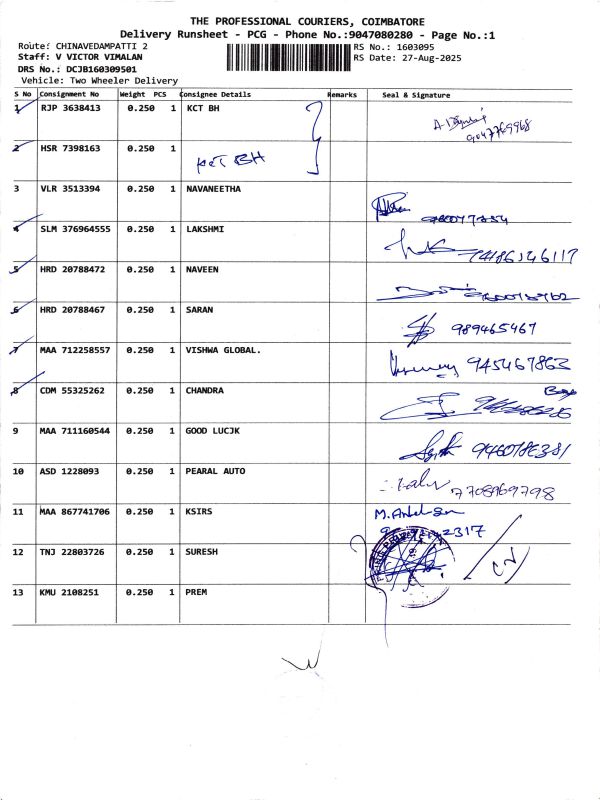 THE PROFESSIONAL COURIERS, COIMBATORE
Delivery Runsheet - PCG - Phone No.:9047080280 - Page No.:1
Route: CHINAVEDAMPATTI 2 RS No.: 1603095
Staff: V VICTOR VIMALAN RS Date: 27-Aug-2025
DRS No.: DCJB160309501
Vehicle: Two Wheeler Delivery
S No Consignment No Weight PCS Consignee Details Remarks Seal & Signature
1 RJP 3638413 0.250 1 KCT BH
9047769968
2 HSR 7398163 0.250 1
KCT BH
3 VLR 3513394 0.250 1 NAVANEETHA
4 SLM 376964555 0.250 1 LAKSHMI
5 HRD 20788472 0.250 1 NAVEEN
6 HRD 20788467 0.250 1 SARAN
989465467
7 MAA 712258557 0.250 1 VISHWA GLOBAL.
945467863
8 CDM 55325262 0.250 1 CHANDRA
9 MAA 711160544 0.250 1 GOOD LUCJK
10 ASD 1228093 0.250 1 PEARAL AUTO
7708969798
11 MAA 867741706 0.250 1 KSIRS
12 TNJ 22803726 0.250 1 SURESH
13 KMU 2108251 0.250 1 PREM